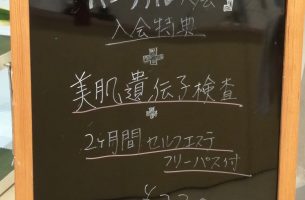 入会特典
美肌遺伝子検査
2ヶ月間 セルフエステ
フリーパス付